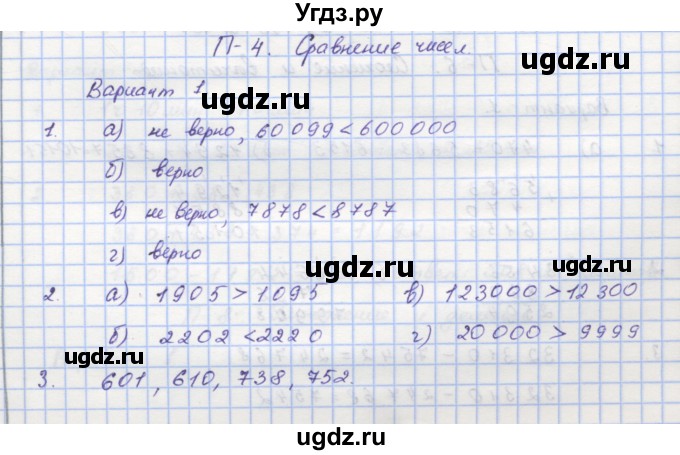 Угдз.ру
П-4. Сравнение чисел.
Вариант 1
ugdz.ru ugdz.ru
1. а) не верно, 60099 < 600000
б) верно
ugdz.ru ugdz.ru
в) не верно, 7878 < 8787
г) верно
ugdz.ru ugdz.ru
2. а) 1905 > 1095 в) 123000 > 12300
б) 2202 < 2220 г) 20000 > 9999
ugdz.ru ugdz.ru
3. 601, 610, 738, 752.
ugdz.ru ugdz.ru